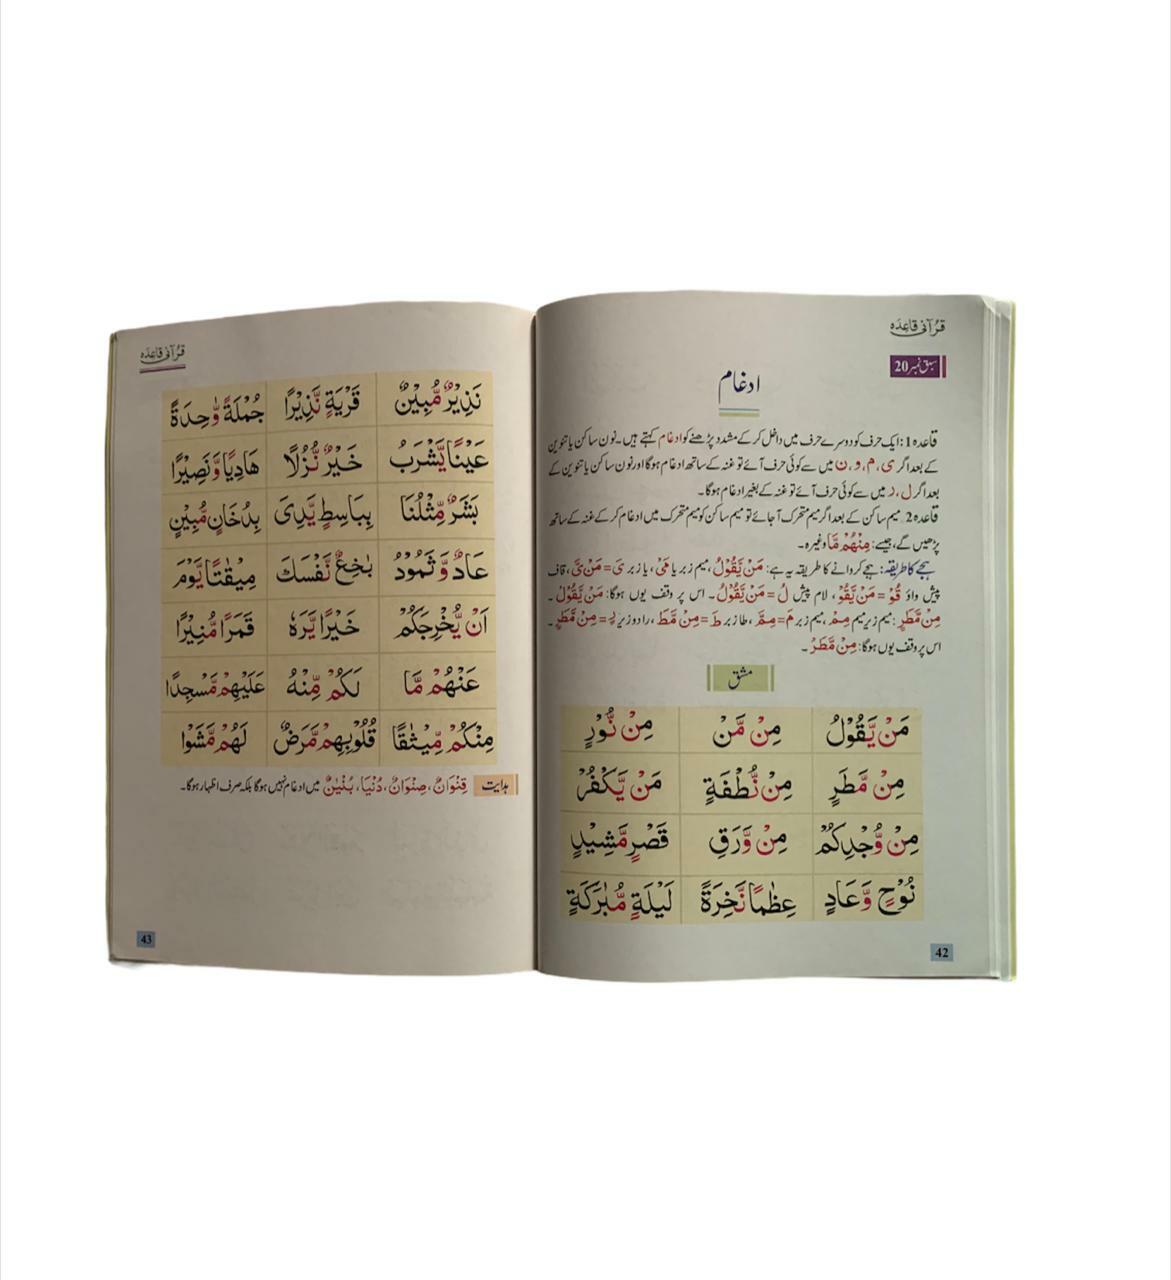 قرآنی قاعدہ
سبق نمبر 20
ادغام
قاعدہ 1: ایک حرف کو دوسرے حرف میں داخل کر کے مشدد پڑھنے کو ادغام کہتے ہیں۔ نون ساکن یا تنوین
کے بعد اگر ی، م، و، ن میں سے کوئی حرف آئے تو غنہ کے ساتھ ادغام ہوگا اور نون ساکن یا تنوین کے
بعد اگر ل، ر میں سے کوئی حرف آئے تو غنہ کے بغیر ادغام ہوگا۔
قاعدہ 2: میم ساکن کے بعد اگر میم متحرک آجائے تو میم ساکن کو میم متحرک میں ادغام کر کے غنہ کے ساتھ
پڑھیں گے، جیسے: مِنْهُمْ مَّا وغیرہ۔
ہجے کا طریقہ: ہجے کروانے کا طریقہ یہ ہے: مَنْ يَّقُوْلُ، میم زبر یا مَیْ، یا زبر یَ = مَنْ یَّ، قاف
پیش واؤ قُوْ = مَنْ يَّقُوْ، لام پیش لُ = مَنْ يَّقُوْلُ۔ اس پر وقف یوں ہوگا: مَنْ يَّقُوْلْ۔
مِنْ مَّطَرٍ: میم زیر میم مِمْ، میم زبر مَ = مِمَّ، طا زبر طَ = مِنْ مَّطَ، را دو زیر رٍ = مِنْ مَّطَرٍ۔
اس پر وقف یوں ہوگا: مِنْ مَّطَرْ۔
مشق
مَنْ يَّقُوْلُ مِنْ مَّنْ مِنْ نُّوْرٍ
مِنْ مَّطَرٍ مِنْ نُّطْفَةٍ مَنْ يَّكْفُرْ
مِنْ وُّجْدِكُمْ مِنْ وَّرَقِ قَصْرٍ مَّشِيْدٍ
نُوْحٍ وَّعَادٍ عِظٰمًا نَّخِرَةً لَيْلَةٍ مُّبٰرَكَةٍ
42
قرآنی قاعدہ
نَذِيْرٌ مُّبِيْنٌ قَرْيَةٍ نَّذِيْرًا جُمْلَةً وَّاحِدَةً
عَيْنًا يَّشْرَبُ خَيْرٌ نُّزُلًا هَادِيًا وَّنَصِيْرًا
بَشَرٌ مِّثْلُنَا بِبَاسِطٍ يَّدِیَ بِدُخَانٍ مُّبِيْنٍ
عَادٌ وَّثَمُوْدُ بَاخِعٌ نَّفْسَكَ مِيْقَاتًا يَّوْمَ
اَنْ يُّخْرِجَكُمْ خَيْرًا يَّرَهٗ قَمَرًا مُّنِيْرًا
عَنْهُمْ مَّا لَكُمْ مِّنْهُ عَلَيْهِمْ مَّسْجِدًا
مِنْكُمْ مِّيْثٰقًا قُلُوْبِهِمْ مَّرَضٌ لَهُمْ مَّشَوْا
ہدایت قِنْوَانٌ، صِنْوَانٌ، دُنْيَا، بُنْيَانٌ میں ادغام نہیں ہوگا بلکہ صرف اظہار ہوگا۔
43